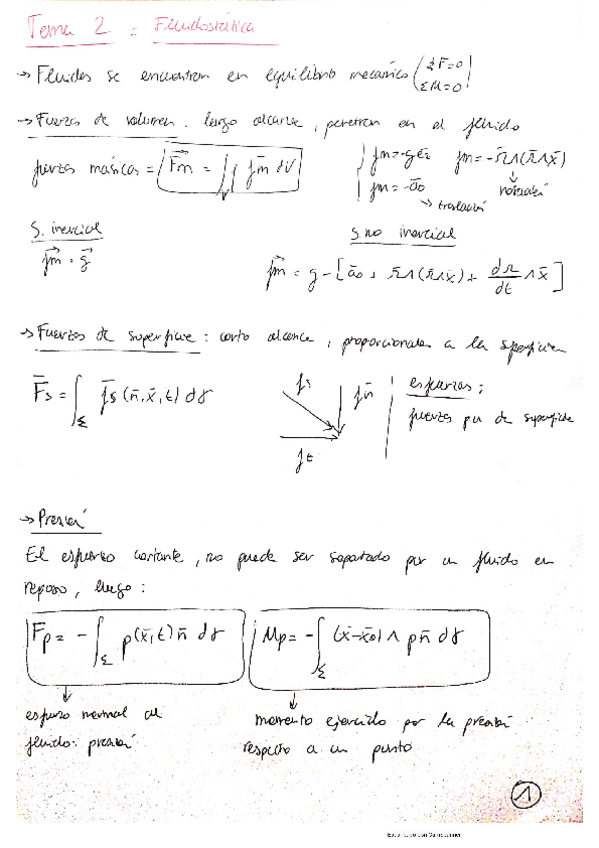 Tema 2 = Fluidostática
→ Fluidos se encuentran en equilibrio mecánico (ΣF=0
ΣM=0)
→ Fuerzas de volumen. largo alcance, penetran en el fluido
fuerzas másicas = F⃗m = ∭ f̄m dV
fm=-gēz fm=-Ω̄∧(Ω̄∧x̄)
fm=-āo rotación
→ traslación
S. inercial
f⃗m = g⃗
S. no inercial
f⃗m = g - [āo + Ω̄∧(Ω̄∧x̄) + dΩ/dt ∧ x̄]
→ Fuerzas de superficie: corto alcance, proporcionales a la superficie
F̄s = ∫Σ f̄s (n̄, x̄, t) dσ
fs fn
ft
esfuerzos;
fuerzas por de superficie
→ Presión
El esfuerzo cortante, no puede ser soportado por un fluido en
reposo, luego:
F̄p = - ∫Σ p(x̄,t) n̄ dσ
Mp = - ∫Σ (x̄-x̄o) ∧ p n̄ dσ
esfuerzo normal al
fluido: presión
momento ejercido por la presión
respecto a un punto
1